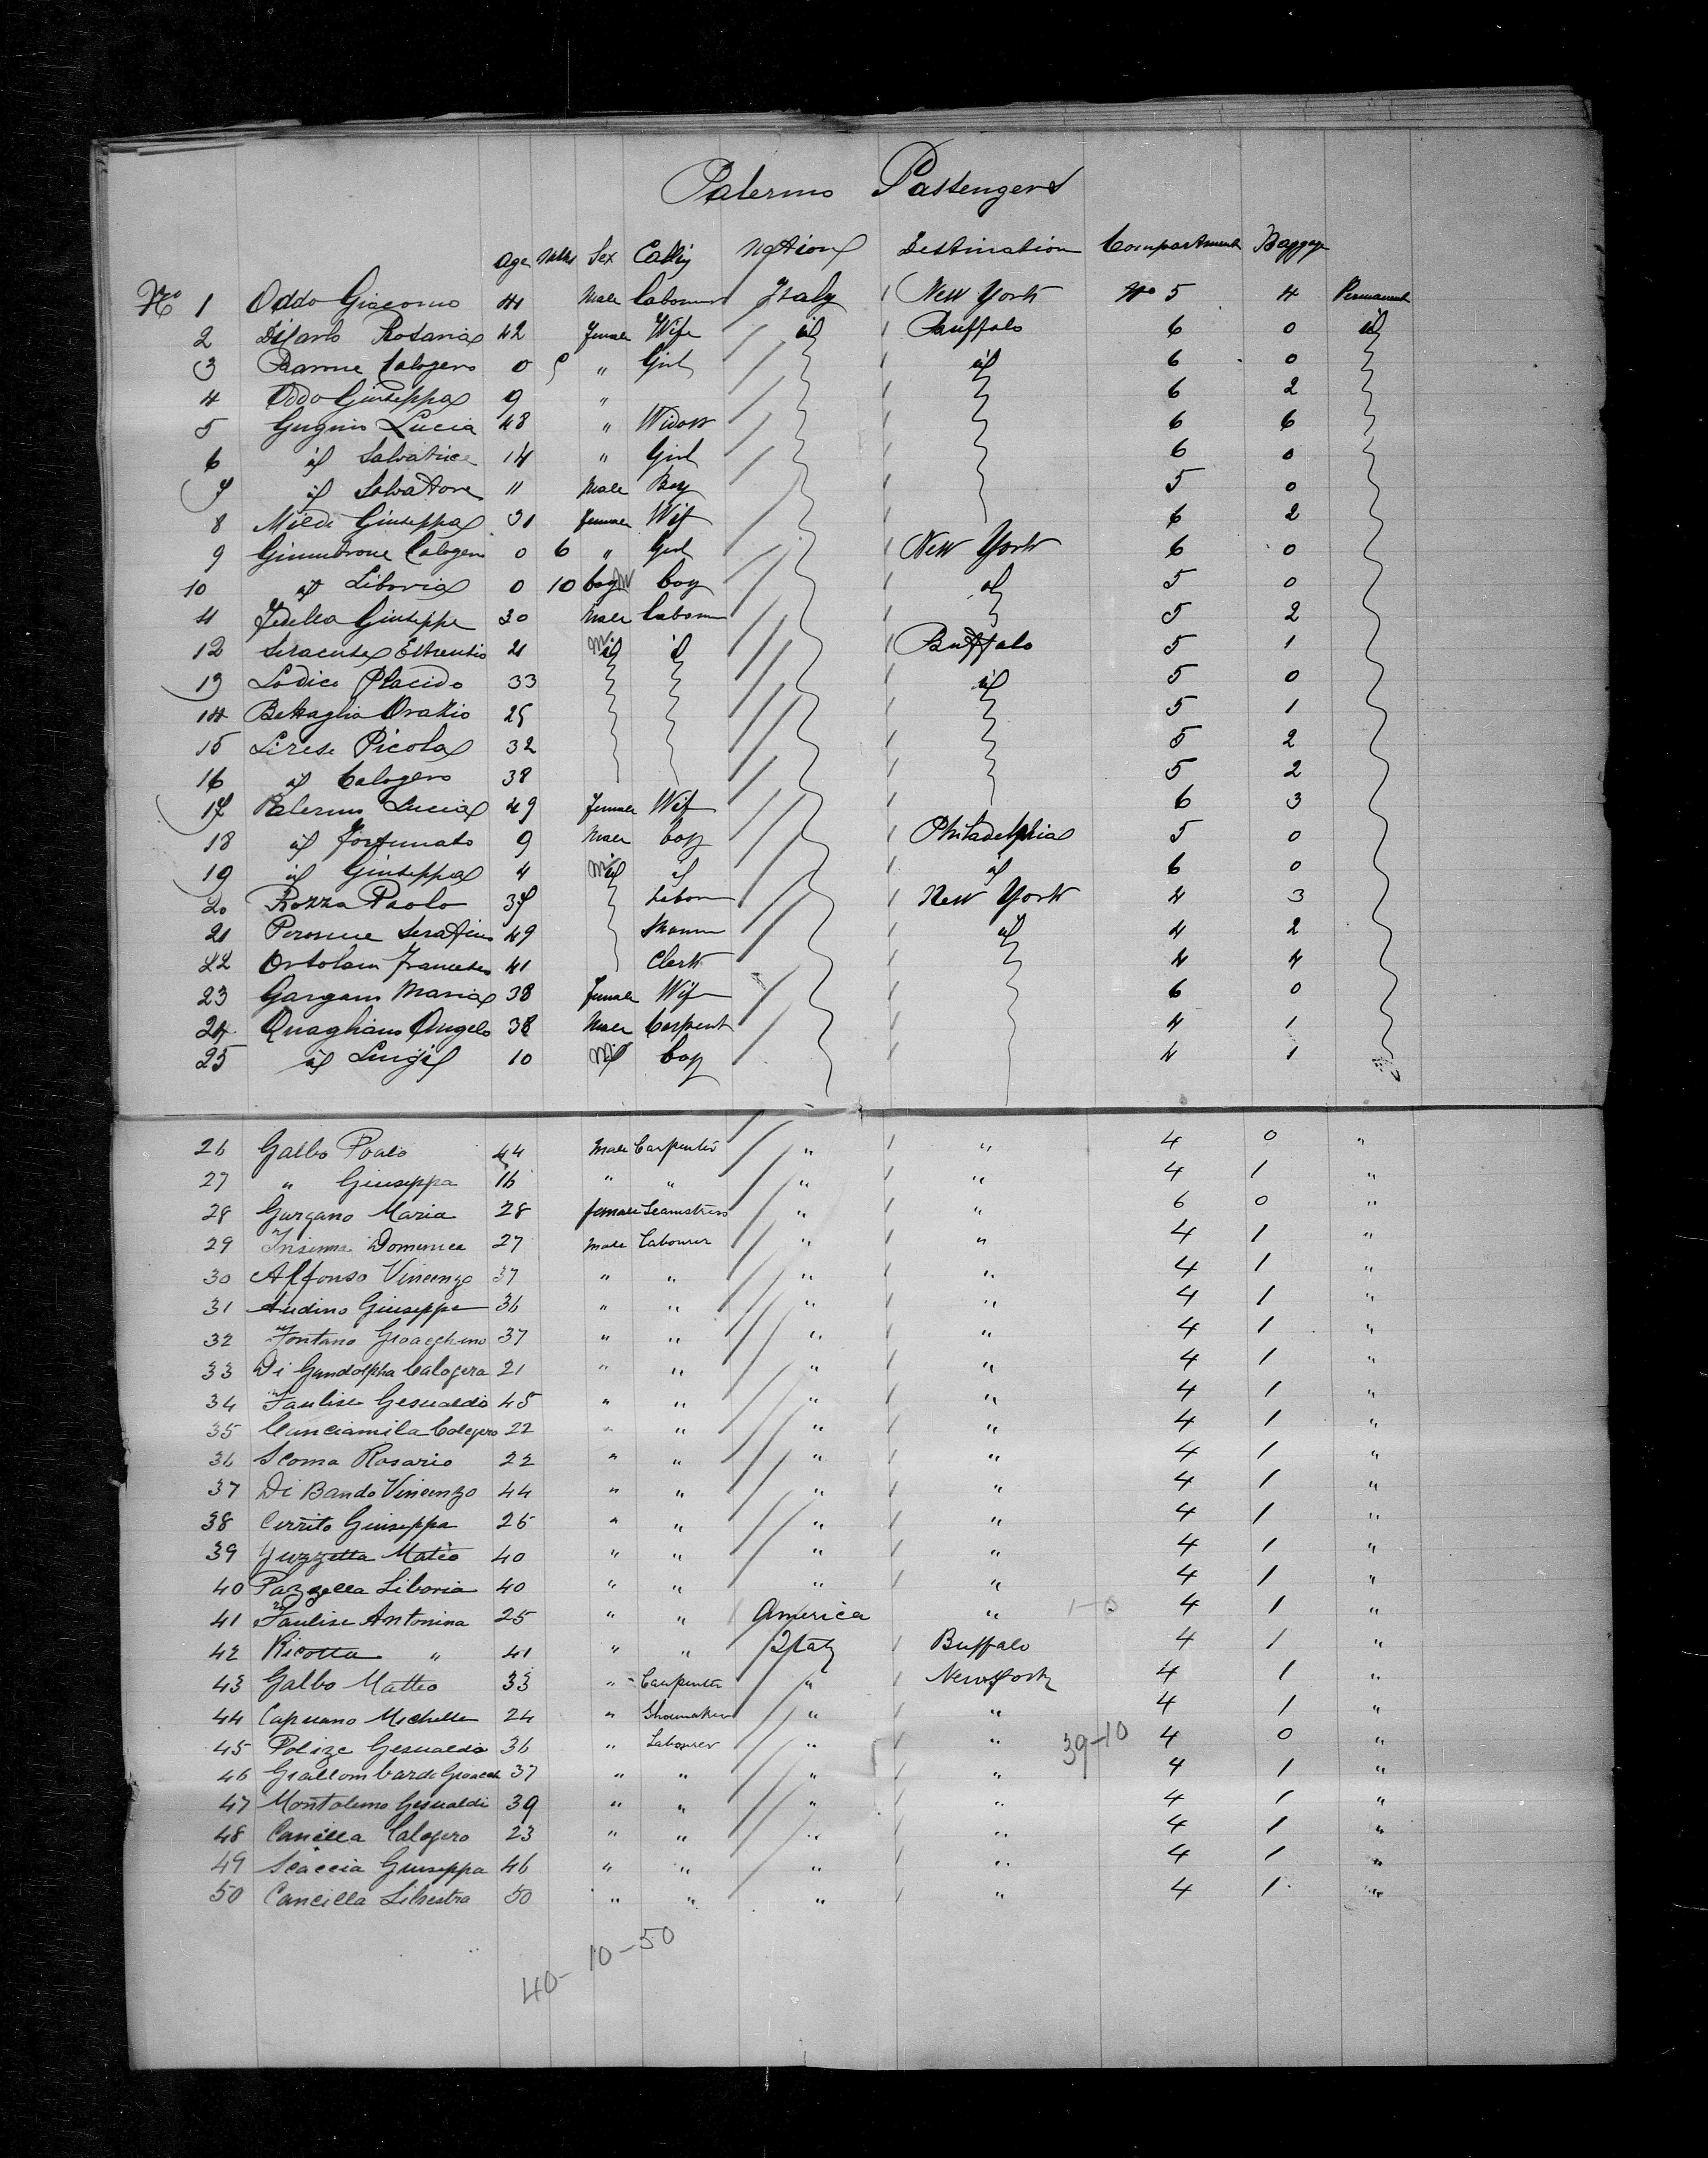 Palermo Passengers
Age Mths Sex Calling Nation Destination Compartment Baggage
No 1 Oddo Giacomo 44 Male Labourer Italy 1 New York No 5 4 Permanent
2 Rosaria 42 female Wife id 1 Buffalo 6 0 id
3 Barone Calogero 0 " Girl 1 id 6 0
4 Oddo Giuseppa 9 " 1 6 2
5 Gugino Lucia 48 " Widow 1 6 6
6 id Salvatrice 14 " Girl 1 6 0
7 id Salvatore 11 Male Boy 1 5 0
8 Giuseppa 31 female Wife 1 6 2
9 Calogera 0 6 " Girl 1 New York 6 0
10 id Liboria 0 10 boy M boy 1 id 5 0
11 Fedella Giuseppe 30 Male Labourer 1 5 2
12 Siracusa 21 M id id 1 Buffalo 5 1
13 Lodico Placido 33 1 id 5 0
14 Battaglia Orazio 25 1 5 1
15 Picola 32 1 5 2
16 id Calogero 38 1 5 2
17 Palermo Lucia 49 female Wife 1 6 3
18 id Fortunato 9 Male boy 1 Philadelphia 5 0
19 id Giuseppa 4 M id id 1 id 6 0
20 Rozza Paolo 37 Labourer 1 New York 4 3
21 Serafino 49 1 id 4 2
22 Ortolani Francesco 41 Clerk 1 4 4
23 Gargano Maria 38 female Wife 1 6 0
24 Quagliano Angelo 38 Male Carpent 1 4 1
25 id Luigi 10 M id boy 1 4 1
26 Galbo Poalo 44 Male Carpenter " 1 " 4 0 "
27 " Giuseppa 16 " " " 1 " 4 1 "
28 Gurgano Maria 28 female Seamstress " 1 " 6 0 "
29 Insinna Domenica 27 Male Labourer " 1 " 4 1 "
30 Alfonso Vincenzo 37 " " " 1 " 4 1 "
31 Audino Giuseppe 36 " " " 1 " 4 1 "
32 Fontano Gioacchino 37 " " " 1 " 4 1 "
33 Di Gandolpha Calogera 21 " " " 1 " 4 1 "
34 Faulise Gesualdo 45 " " " 1 " 4 1 "
35 Cunciamila Calogero 22 " " " 1 " 4 1 "
36 Scoma Rosario 22 " " " 1 " 4 1 "
37 Di Bando Vincenzo 44 " " " 1 " 4 1 "
38 Cerrito Giuseppa 25 " " " 1 " 4 1 "
39 Guzzetta Mateo 40 " " " 1 " 4 1 "
40 Pazzella Liboria 40 " " " 1 " 4 1 "
41 Faulise Antonina 25 " " America " 1-0 4 1 "
42 Ricotta " 41 " " Italy 1 Buffalo 4 1 "
43 Galbo Matteo 33 " Carpenter " 1 New York 4 1 "
44 Capuano Michelle 24 " Shoemaker " 1 " 4 1 "
45 Polize Gesualdo 36 " Labourer " 1 " 39-10 4 0 "
46 Giallombardo 37 " " " 1 " 4 1 "
47 Gesualdi 39 " " " 1 " 4 1 "
48 Cancilla Calogero 23 " " " 1 " 4 1 "
49 Scaccia Giuseppa 46 " " " 1 " 4 1 "
50 Cancilla Silvestra 50 " " " 1 " 4 1 "
40- 10-50